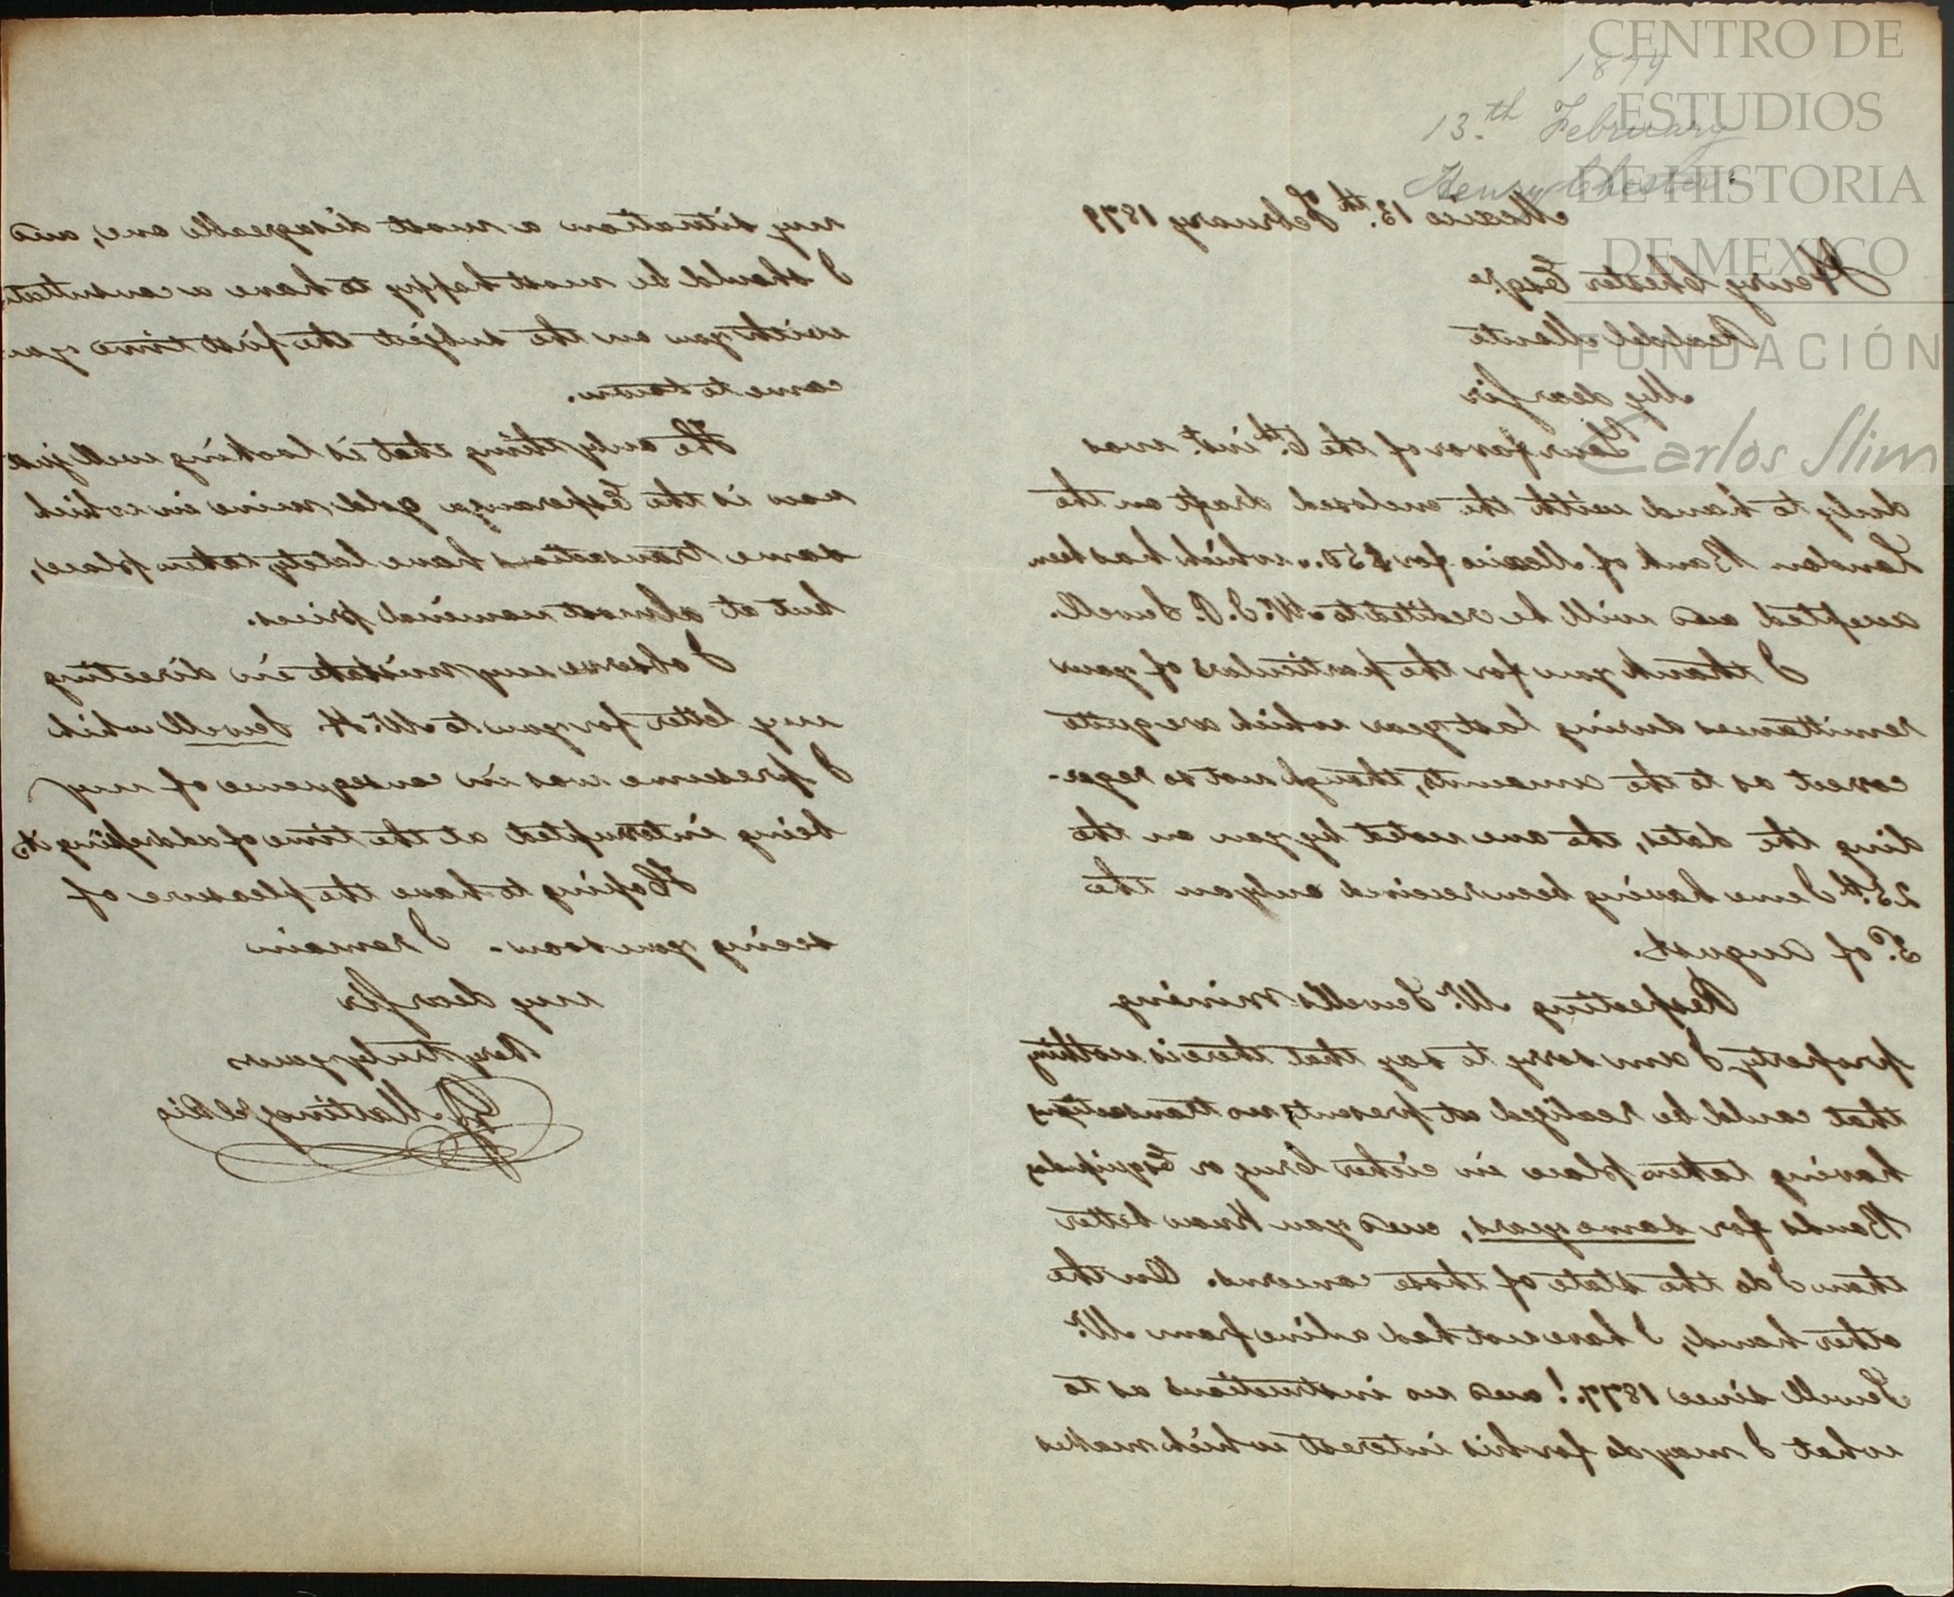 CENTRO DE
ESTUDIOS
DE HISTORIA
DE MEXICO
FUNDACIÓN
Carlos Slim
1879
13.th February
Henry Chester.
Mexico 13.th February 1879
Henry Chester Esqre
Real del Monte
My dear Sir
Your favor of the 6th inst. was
duly to hand with the enclosed draft on the
London Bank of Mexico for $50.. which has been
accepted and will be credited to Mr. J. P. Sewell.
I thank you for the particulars of your
remittances during last year which are quite
correct as to the amounts, though not so regar-
ding the dates, the one noted by you on the
25th June having been received only on the
5o. of August.
Respecting Mr. Sewell's Mining
property, I am sorry to say that there is nothing
that could be realized at present, no transactions
having taken place in either or
Bonds for some years, and you know better
than I do the state of those concerns. On the
other hand, I have not had a line from Mr.
Sewell since 1877! and no instructions as to
what I may do for his interest which makes
my situation a most disagreeable one, and
I should be most happy to have a consultation
with you on the subject the first time you
come to town.
The only thing that is looking well just
now is the Esperanza gold mine in which
some transactions have lately taken place,
but at almost nominal prices.
I observe my mistake in directing
my letter for you to Mr. H. Sewell which
I presume was in consequence of my
being interrupted at the time of addressing it.
Hoping to have the pleasure of
seeing you soon.- I remain
my dear Sir
Very truly yours
Martinez del Rio